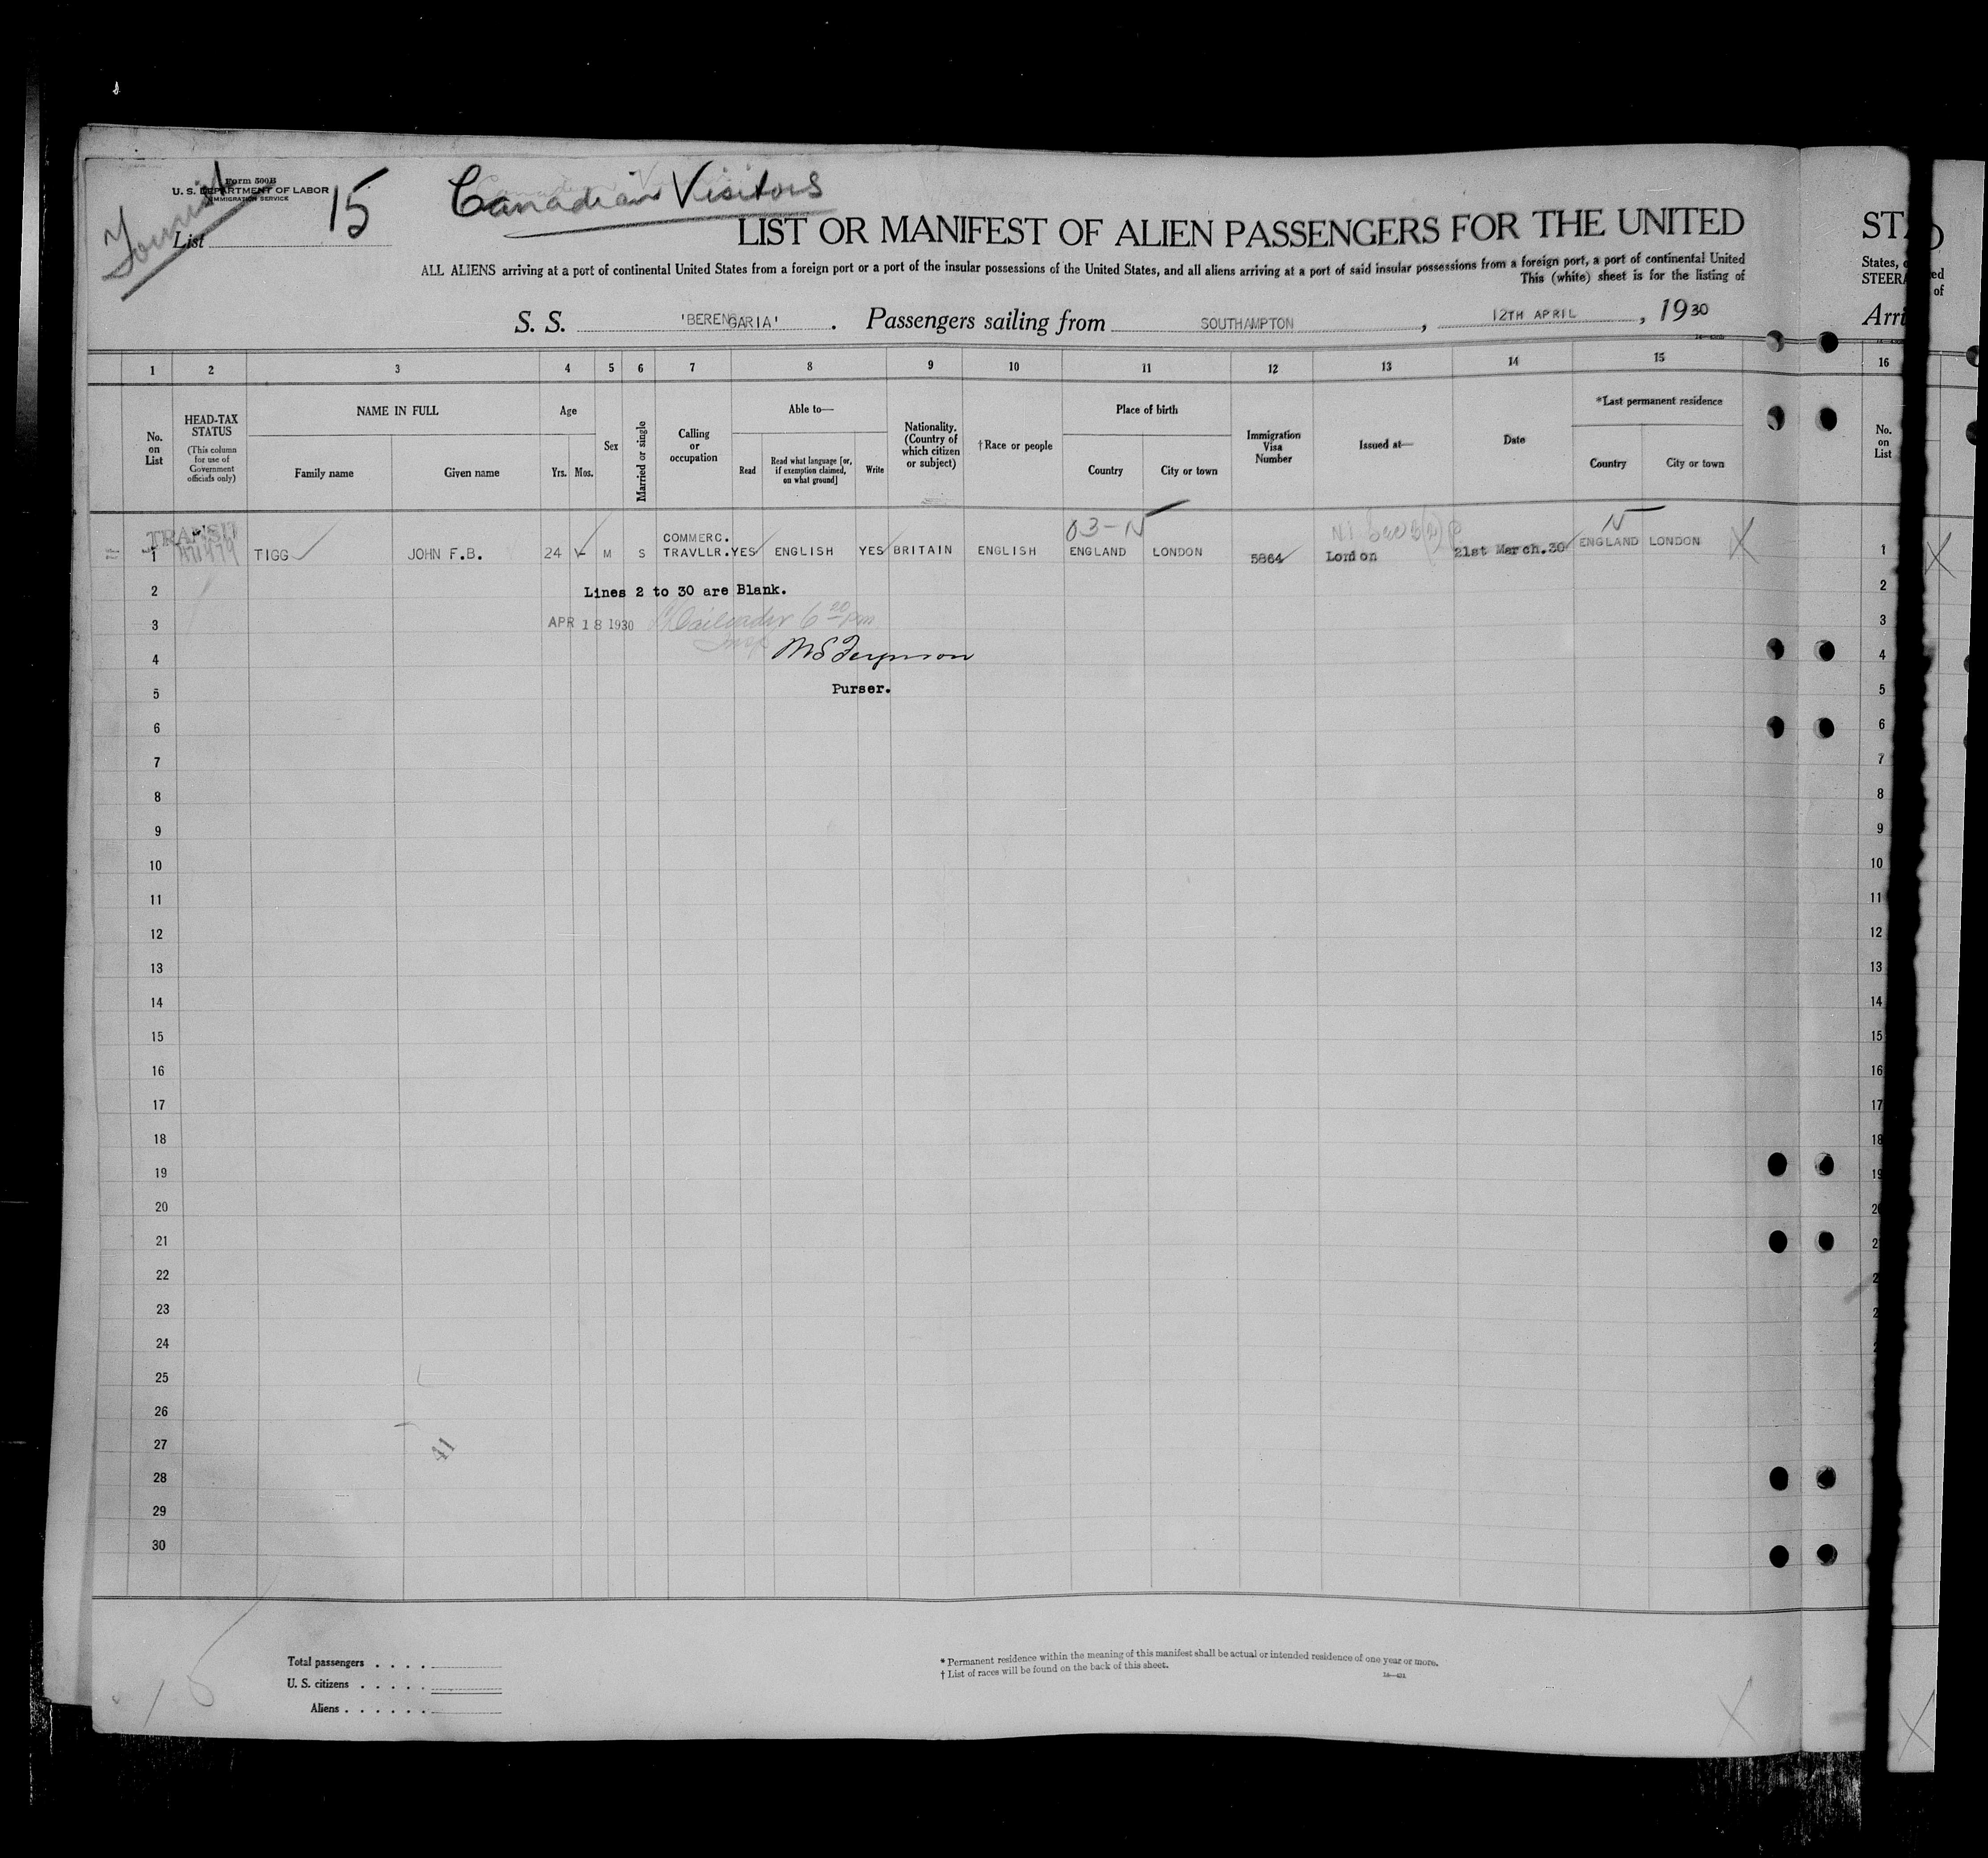 Form 500B
U. S. DEPARTMENT OF LABOR
IMMIGRATION SERVICE
Tourist
List 15
Canadian Visitors
LIST OR MANIFEST OF ALIEN PASSENGERS FOR THE UNITED
ALL ALIENS arriving at a port of continental United States from a foreign port or a port of the insular possessions of the United States, and all aliens arriving at a port of said insular possessions from a foreign port, a port of continental United
This (white) sheet is for the listing of
S. S. 'BERENGARIA' . Passengers sailing from SOUTHAMPTON , 12TH APRIL , 1930
1 2 3 4 5 6 7 8 9 10 11 12 13 14 15
No. on List
HEAD-TAX STATUS
(This column for use of Government officials only)
NAME IN FULL
Family name Given name
Age
Yrs. Mos.
Sex
Married or single
Calling or occupation
Able to—
Read
Read what language [or, if exemption claimed, on what ground]
Write
Nationality. (Country of which citizen or subject)
†Race or people
Place of birth
Country City or town
Immigration Visa Number
Issued at—
Date
*Last permanent residence
Country City or town
TRANSIT
03-N N
1 TIGG JOHN F.B. 24 - M S COMMERC. TRAVLLR. YES ENGLISH YES BRITAIN ENGLISH ENGLAND LONDON 5864 London 21st March.30 ENGLAND LONDON X
2 Lines 2 to 30 are Blank.
3 APR 18 1930
4
5 Purser.
6
7
8
9
10
11
12
13
14
15
16
17
18
19
20
21
22
23
24
25
26
27
41
28
29
30
Total passengers . . . .
U. S. citizens . . . . .
Aliens . . . . . .
* Permanent residence within the meaning of this manifest shall be actual or intended residence of one year or more.
† List of races will be found on the back of this sheet.
X
STA
States,
STEERA
Arri
16
No. on List
1
2
3
4
5
6
7
8
9
10
11
12
13
14
15
16
17
18
19